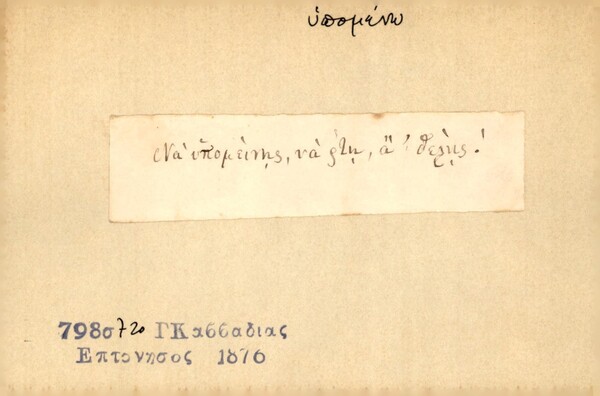 ὑπομένω
Νὰ ὑπομείνῃς, νὰ ρτῃ, ἂ θέλῃς!
798σ720 ΓΚασσαδιας
Επτονησος 1876